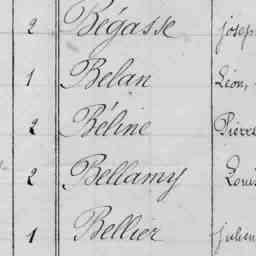 2 Bégasse josep
1 Belan Léon,
2 Béline Pierre
2 Bellamy Louis
1 Bellier julien